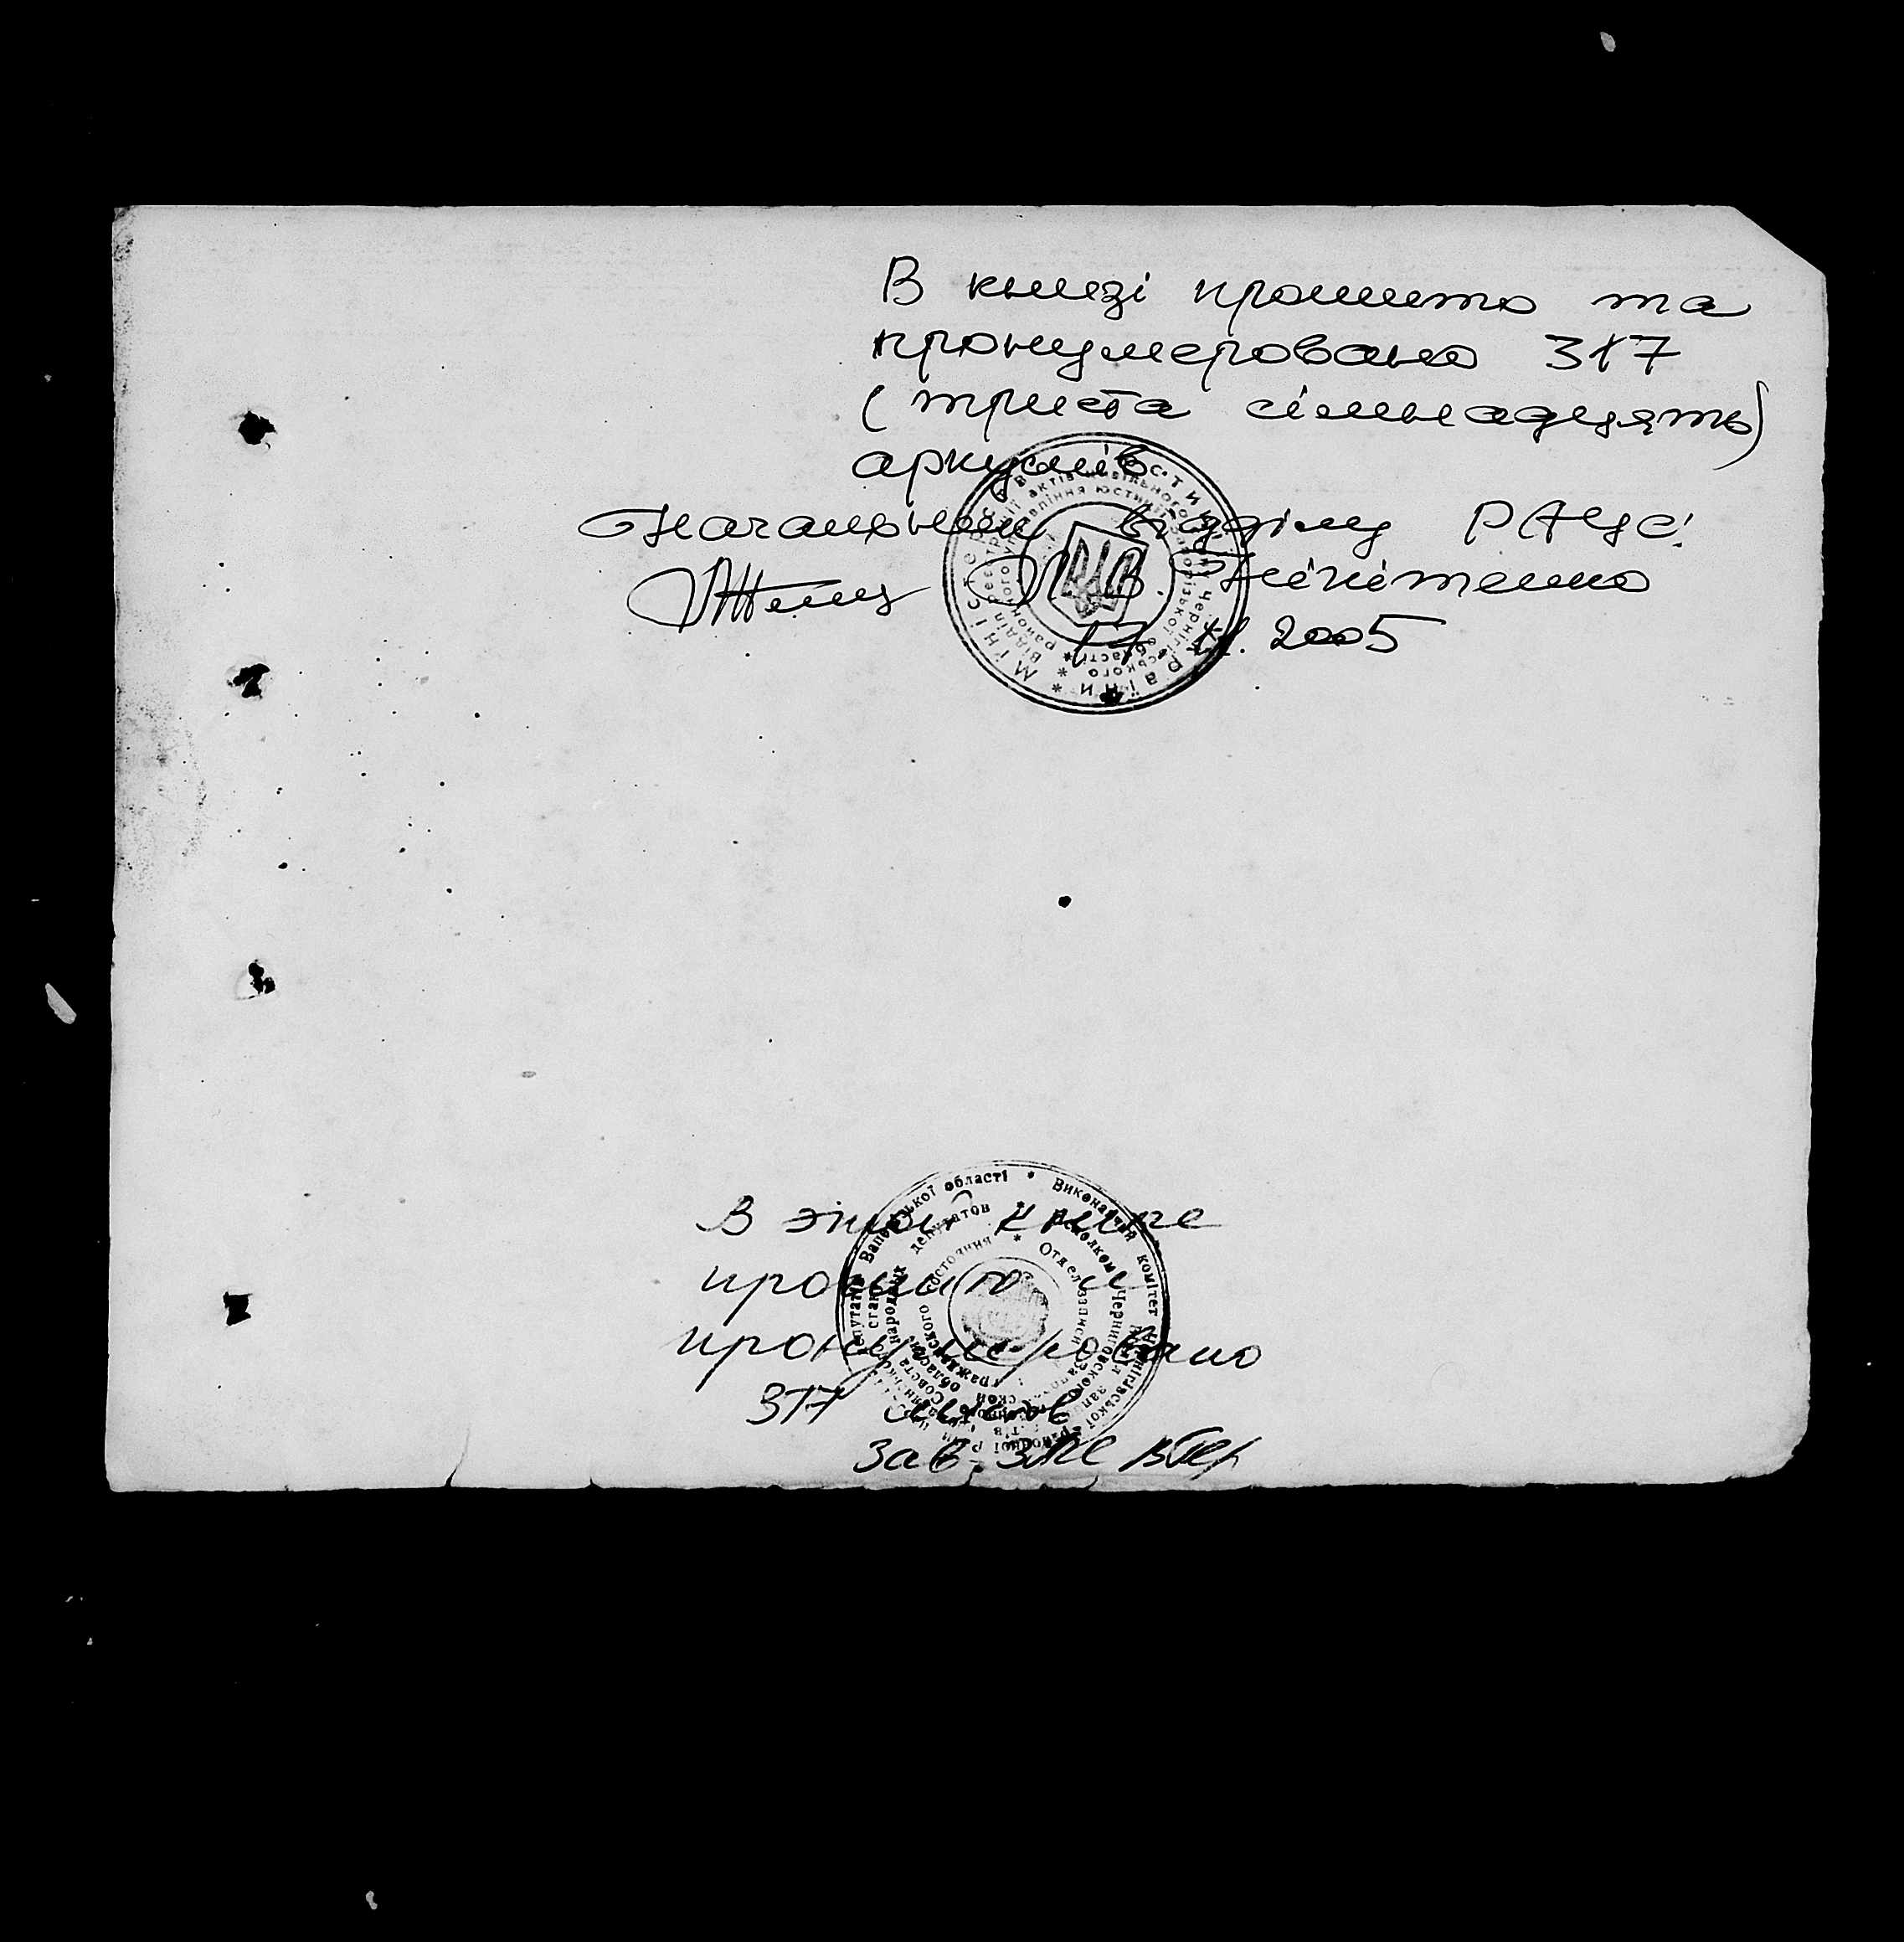 В книзі прошито та
пронумеровано 317
(триста сімнадцять)
аркушів.
Начальник відділу РАЦС:
В. Нікітенко
2005
Міністерство юстиції України
Відділ реєстрації актів цивільного стану Чернігівського
районного управління юстиції Запорізької області
В этой книге
прошито и
пронумеровано
317 листов
Зав. ЗАГС
Виконавчий комітет Чернігівської районної
депутатів Запорізької області
Исполком Черниговского
Совета народных депутатов
Отдел записи
гражданского состояния